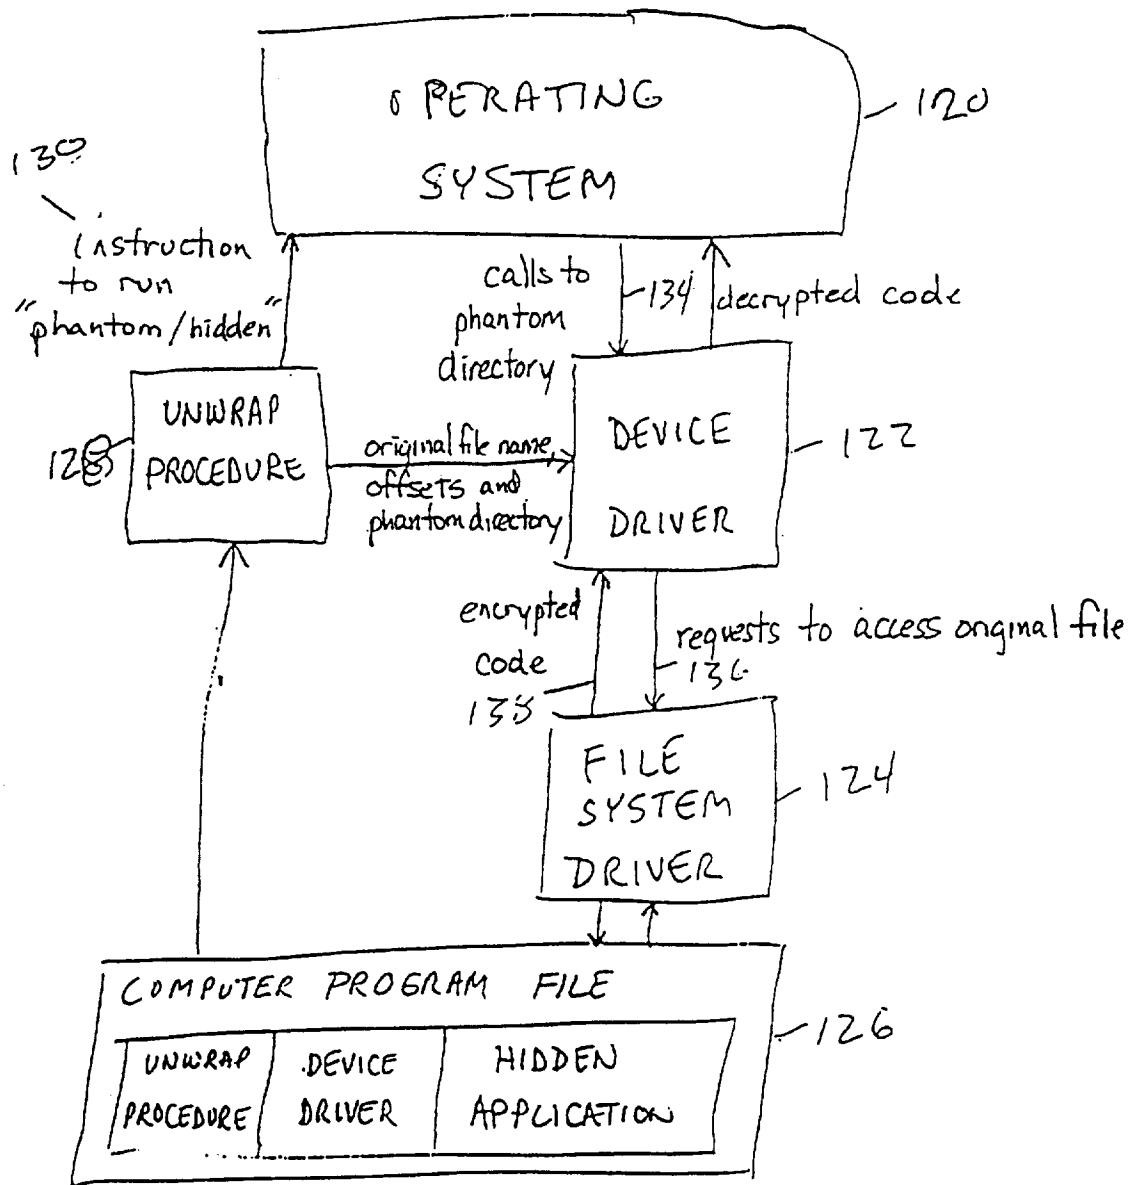 OPERATING
SYSTEM
120
130
instruction
to run
"phantom/hidden"
calls to
phantom
directory
134
decrypted code
UNWRAP
PROCEDURE
128
original file name,
offsets and
phantom directory
DEVICE
DRIVER
122
encrypted
code
138
requests to access original file
136
FILE
SYSTEM
DRIVER
124
COMPUTER PROGRAM FILE
126
UNWRAP
PROCEDURE
DEVICE
DRIVER
HIDDEN
APPLICATION